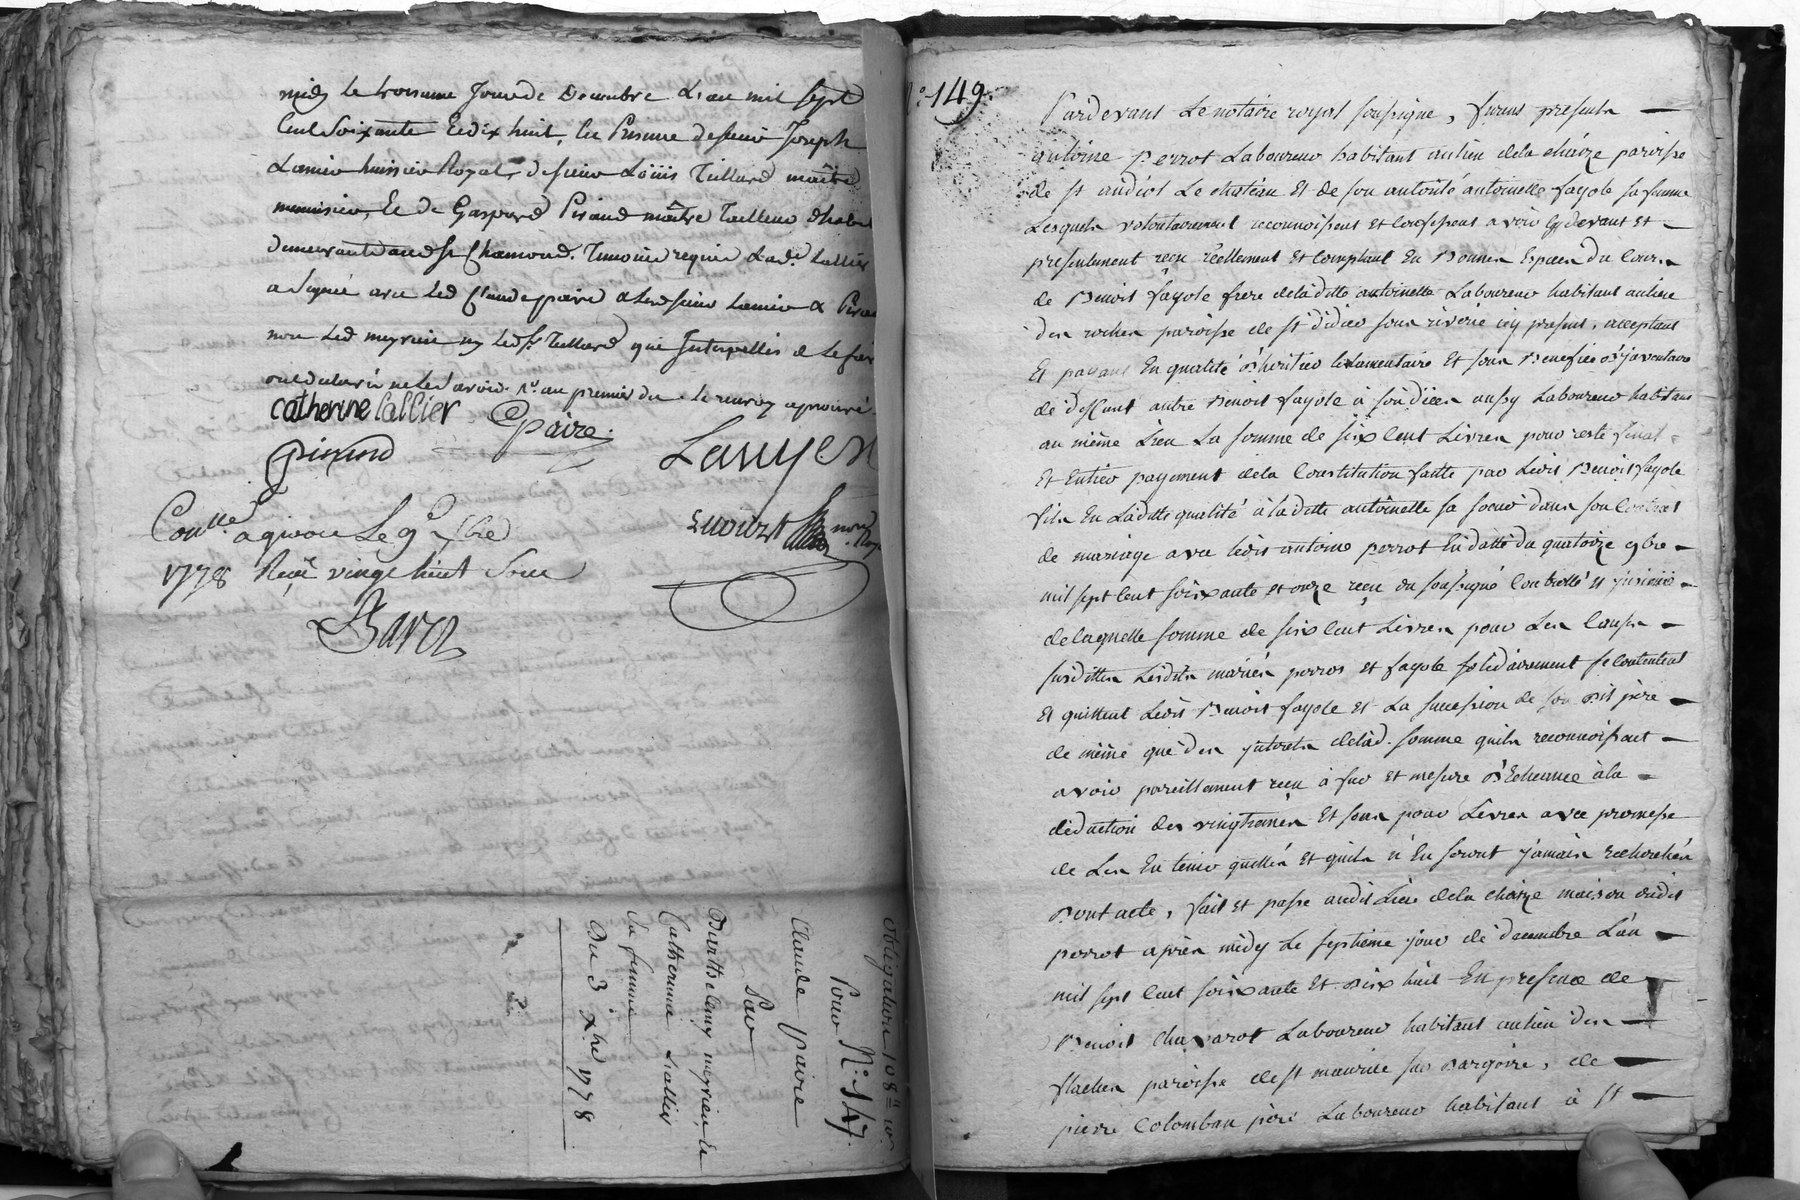 midy le troisieme Jour de Decembre L'an mil sept
Cent Soixante Et dix huit, En Presence de sieur Joseph
Lamier huissier Royal, de sieur Loüis Tillard maitre
menuisier, Et de Gaspard Pinand maître Tailleur d'habit
demeurant aud St Chamond. Temoins requis Lad.e Lallier
a Signé avec Led Claude paire & Led sieur Lamier & Pinand
non Led meyrieu ny Led Sr Tillard qui Interpellés de Le faire
ont declaré ne Le Savoir.
Catherine Lallier
Cpaire
Pinand
Con.lle a givors Le 9 Xbre
1778 Reçu vingt huit Sous
Obligation 108 ₶
Pour N.° 147.
Claude paire
Par
Barthelemy meyrieu, Et
Catherinne Lallier
Sa femme
Du 3 Xbre 1778
N.° 149.
Pardevant Le notaire royal soussigné, furent presents
antoine perrot Laboureur habitant au lieu de la chaize paroisse
de st andéol Le chateau Et de son autorité antoinette fayole sa femme
Lesquels volontairement reconnoissent Et confessent avoir cydevant Et
presentement reçu réellement Et comptant En Bonnes Espèces du Cours
de Benoit fayole frere de la ditte antoinette Laboureur habitant au lieu
des roches paroisse de st didier sous riverie icy present, acceptant
Et payant En qualité d'heritier testamentaire Et sous Benefice d'jnventaire
de deffunt autre Benoit fayole à son décès aussy Laboureur habitant
au même Lieu La somme de six Cent Livres pour reste final
Et Entier payement de la Constitution faitte par Ledit Benoit fayole
fils En Laditte qualité à la ditte antoinette sa soeur dans son Contrat
de mariage avec Ledit antoine perrot En datte du quatorze 9bre
mil sept Cent soixante et onze reçu du soussigné Controllé Et jnsinué
de laquelle somme de six Cent Livres pour Les Causes
susdittes Lesdits mariés perrot et fayole solidairement se contentent
Et quittent Ledit Benoit fayole Et La succession de son dit père
de même que des jnterets de lad. somme quils reconnoissent
avoir pareillement reçu à fur et mesure d'Echeance à la
déduction des vingtiemes Et sous pour Livres avec promesse
de Les En tenir quittes Et quils n'En seront jamais recherchés
Dont acte, fait et passé audit Lieu de la chaize maison dudit
perrot après midy Le septième jour de decembre L'an
mil sept Cent soixante Et Dix huit En presence de
Benoit chavarot Laboureur habitant au lieu des
flaches paroisse de st maurice sur Dargoire, de
pierre Colomban père Laboureur habitant à st